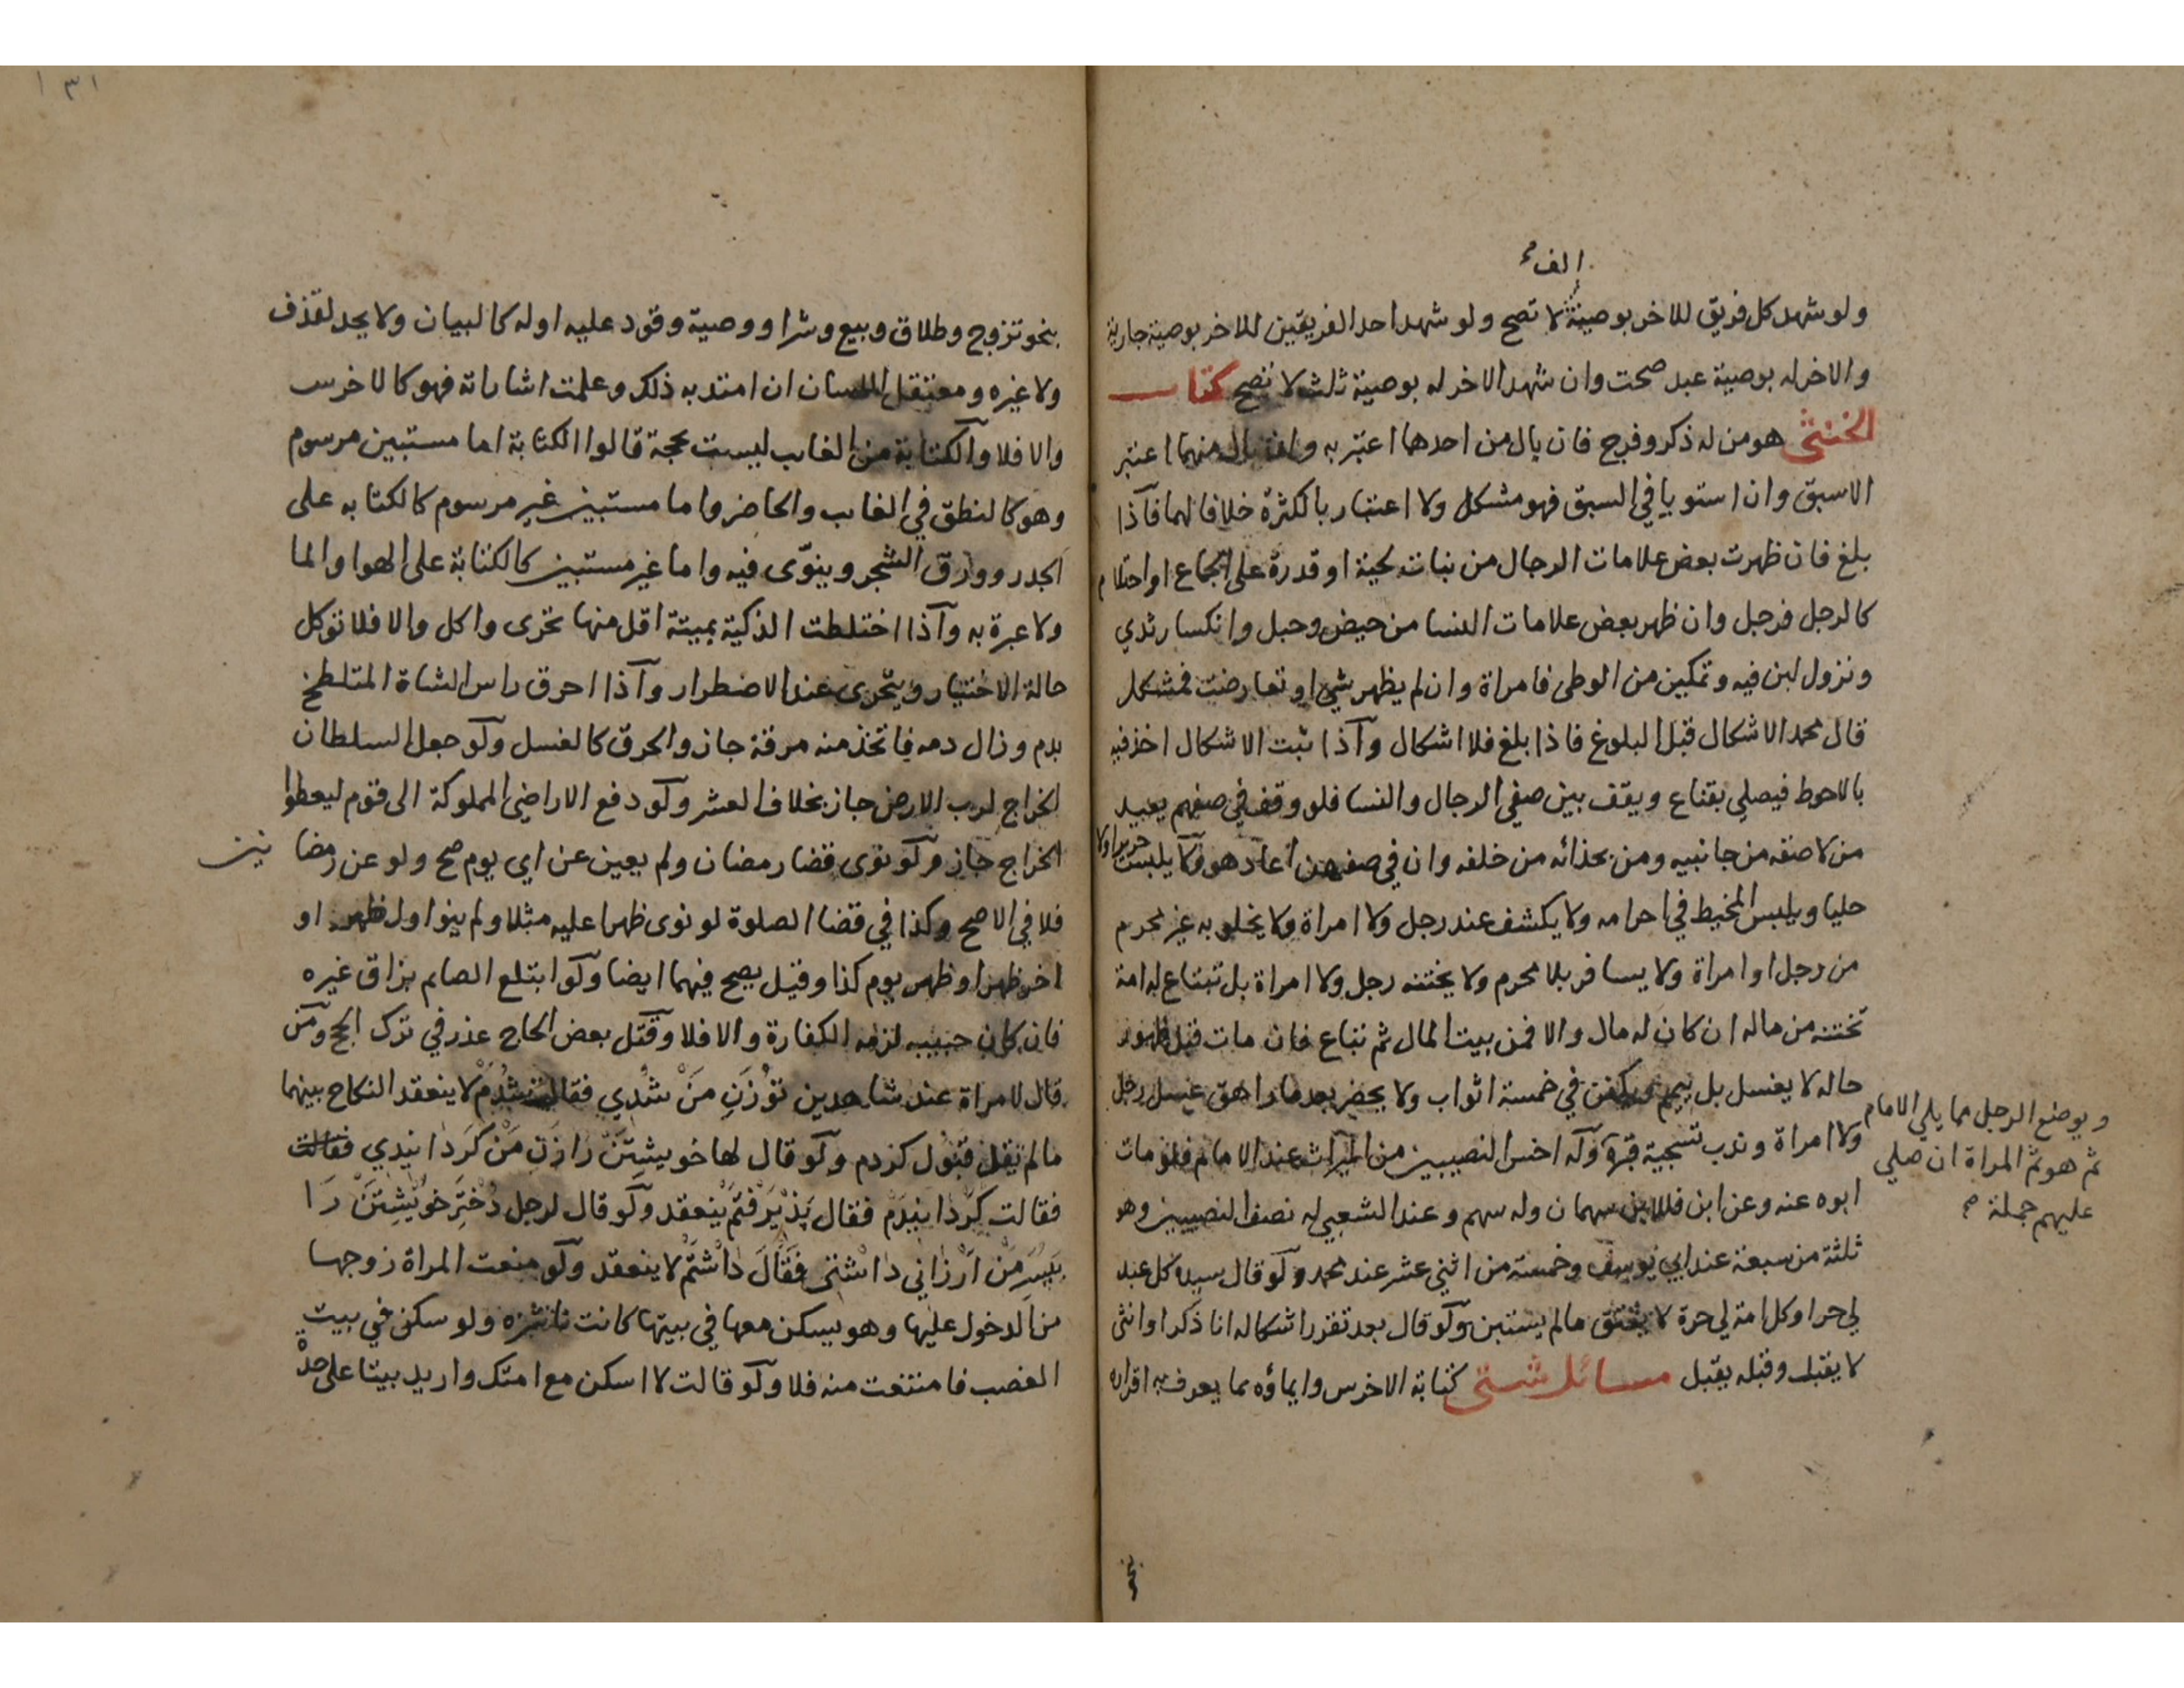 الف
ولو شهد كل فريق للاخر بوصية لا تصح ولو شهد احد الفريقين للاخر بوصية جارية
والاخر له بوصية عبد صحت وان شهد الاخر له بوصية ثلث لا تصح كتاب
الخنثى هو من له ذكر وفرج فان بال من احدهما اعتبر به وان بال منهما اعتبر
الاسبق وان استويا في السبق فهو مشكل ولا اعتبار بالكثرة خلافا لهما فاذا
بلغ فان ظهرت بعض علامات الرجال من نبات لحية او قدرة على الجماع او احتلام
كالرجل فرجل وان ظهر بعض علامات النسا من حيض وحبل وانكسار ثدي
ونزول لبن فيه وتمكين من الوطى فامراة وان لم يظهر شي او تعارضت فمشكل
قال محمد الاشكال قبل البلوغ فاذا بلغ فلا اشكال واذا ثبت الاشكال اخذ فيه
بالاحوط فيصلي بقناع ويقف بين صفي الرجال والنسا فلو وقف في صفهم يعيد
من لاصقه من جانبيه ومن بحذائه من خلفه وان في صفهن اعاد هو ولا يلبس حريرا ولا
حليا ويلبس المخيط في احرامه ولا يكشف عند رجل ولا امراة ولا يخلو به غير محرم
من رجل او امراة ولا يسافر بلا محرم ولا يختنه رجل ولا امراة بل تبتاع له امة
تختنه من ماله ان كان له مال والا فمن بيت المال ثم تباع فان مات قبل ظهور
حاله لا يغسل بل ييمم ويكفن في خمسة اثواب ولا يحضر بعد ما راهق غسل رجل
ولا امراة وندب تسجية قبره وله اخس النصيبين من الميراث عند الامام فلو مات
ابوه عنه وعن ابن فللابن سهمان وله سهم وعند الشعبي له نصف النصيبين وهو
ثلثة من سبعة عند ابي يوسف وخمسة من اثني عشر عند محمد ولو قال سيده كل عبد
لي حر او كل امة لي حرة لا يعتق ما لم يستبن ولو قال بعد تقرر اشكاله انا ذكر او انثى
لا يقبل وقبله يقبل مسائل شتى كتابة الاخرس وايماؤه بما يعرف به اقراره
ويوضع الرجل مما يلي الامام
ثم هو ثم المراة ان صلي
عليهم جملة
بنحو
١٣١
بنحو تزوج وطلاق وبيع وشرا ووصية وقود عليه او له كالبيان ولا يحد لقذف
ولا غيره ومعتقل اللسان ان امتد به ذلك وعلمت اشاراته فهو كالاخرس
والا فلا والكتابة من الغايب ليست بحجة قالوا الكتابة اما مستبين مرسوم
وهو كالنطق في الغايب والحاضر واما مستبين غير مرسوم كالكتابه على
الجدر وورق الشجر وينوى فيه واما غير مستبين كالكتابة على الهوا والما
ولا عبرة به واذا اختلطت الذكية بميتة اقل منها تحرى واكل والا فلا توكل
حالة الاختيار ويتحرى عند الاضطرار واذا احرق راس الشاة المتلطخ
بدم وزال دمه فاتخذ منه مرقة جاز والحرق كالغسل ولو جعل السلطان
الخراج لرب الارض جاز بخلاف العشر ولو دفع الاراضي المملوكة الى قوم ليعطوا
الخراج جاز ولو نوى قضا رمضان ولم يعين عن اي يوم صح ولو عن رمضانين
فلا في الاصح وكذا في قضا الصلوة لو نوى ظهرا عليه مثلا ولم ينو اول ظهر او
اخر ظهر او ظهر يوم كذا وقيل يصح فيهما ايضا ولو ابتلع الصايم بزاق غيره
فان كان حبيبه لزمه الكفارة والا فلا وقتل بعض الحاج عذر في ترك الحج ومن
قال لامراة عند شاهدين توزن من شدي فقالت شدم لا ينعقد النكاح بينهما
ما لم تقل قبول كردم ولو قال لها خويشتن را زن من كردانيدي فقالت
فقالت كردانيدم فقال پذيرفتم ينعقد ولو قال لرجل دختر خويشتن را
بپسر من ارزاني داشتى فقال داشتم لا ينعقد ولو منعت المراة زوجها
من الدخول عليها وهو يسكن معها في بيتها كانت ناشزه ولو سكن في بيت
الغصب فامتنعت منه فلا ولو قالت لا اسكن مع امتك واريد بيتا على حدة